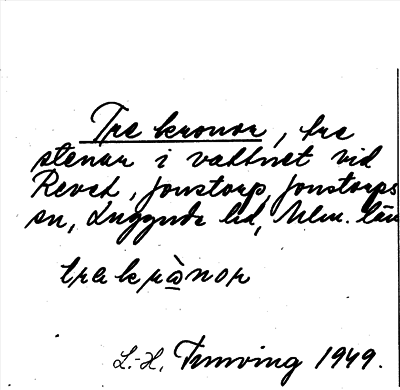 Tre kronor, tre
stenar i vattnet vid
Revet, Jonstorp, Jonstorps
sn, Luggude hd, Mlm. län
trekrònor
L.-H. 1949.